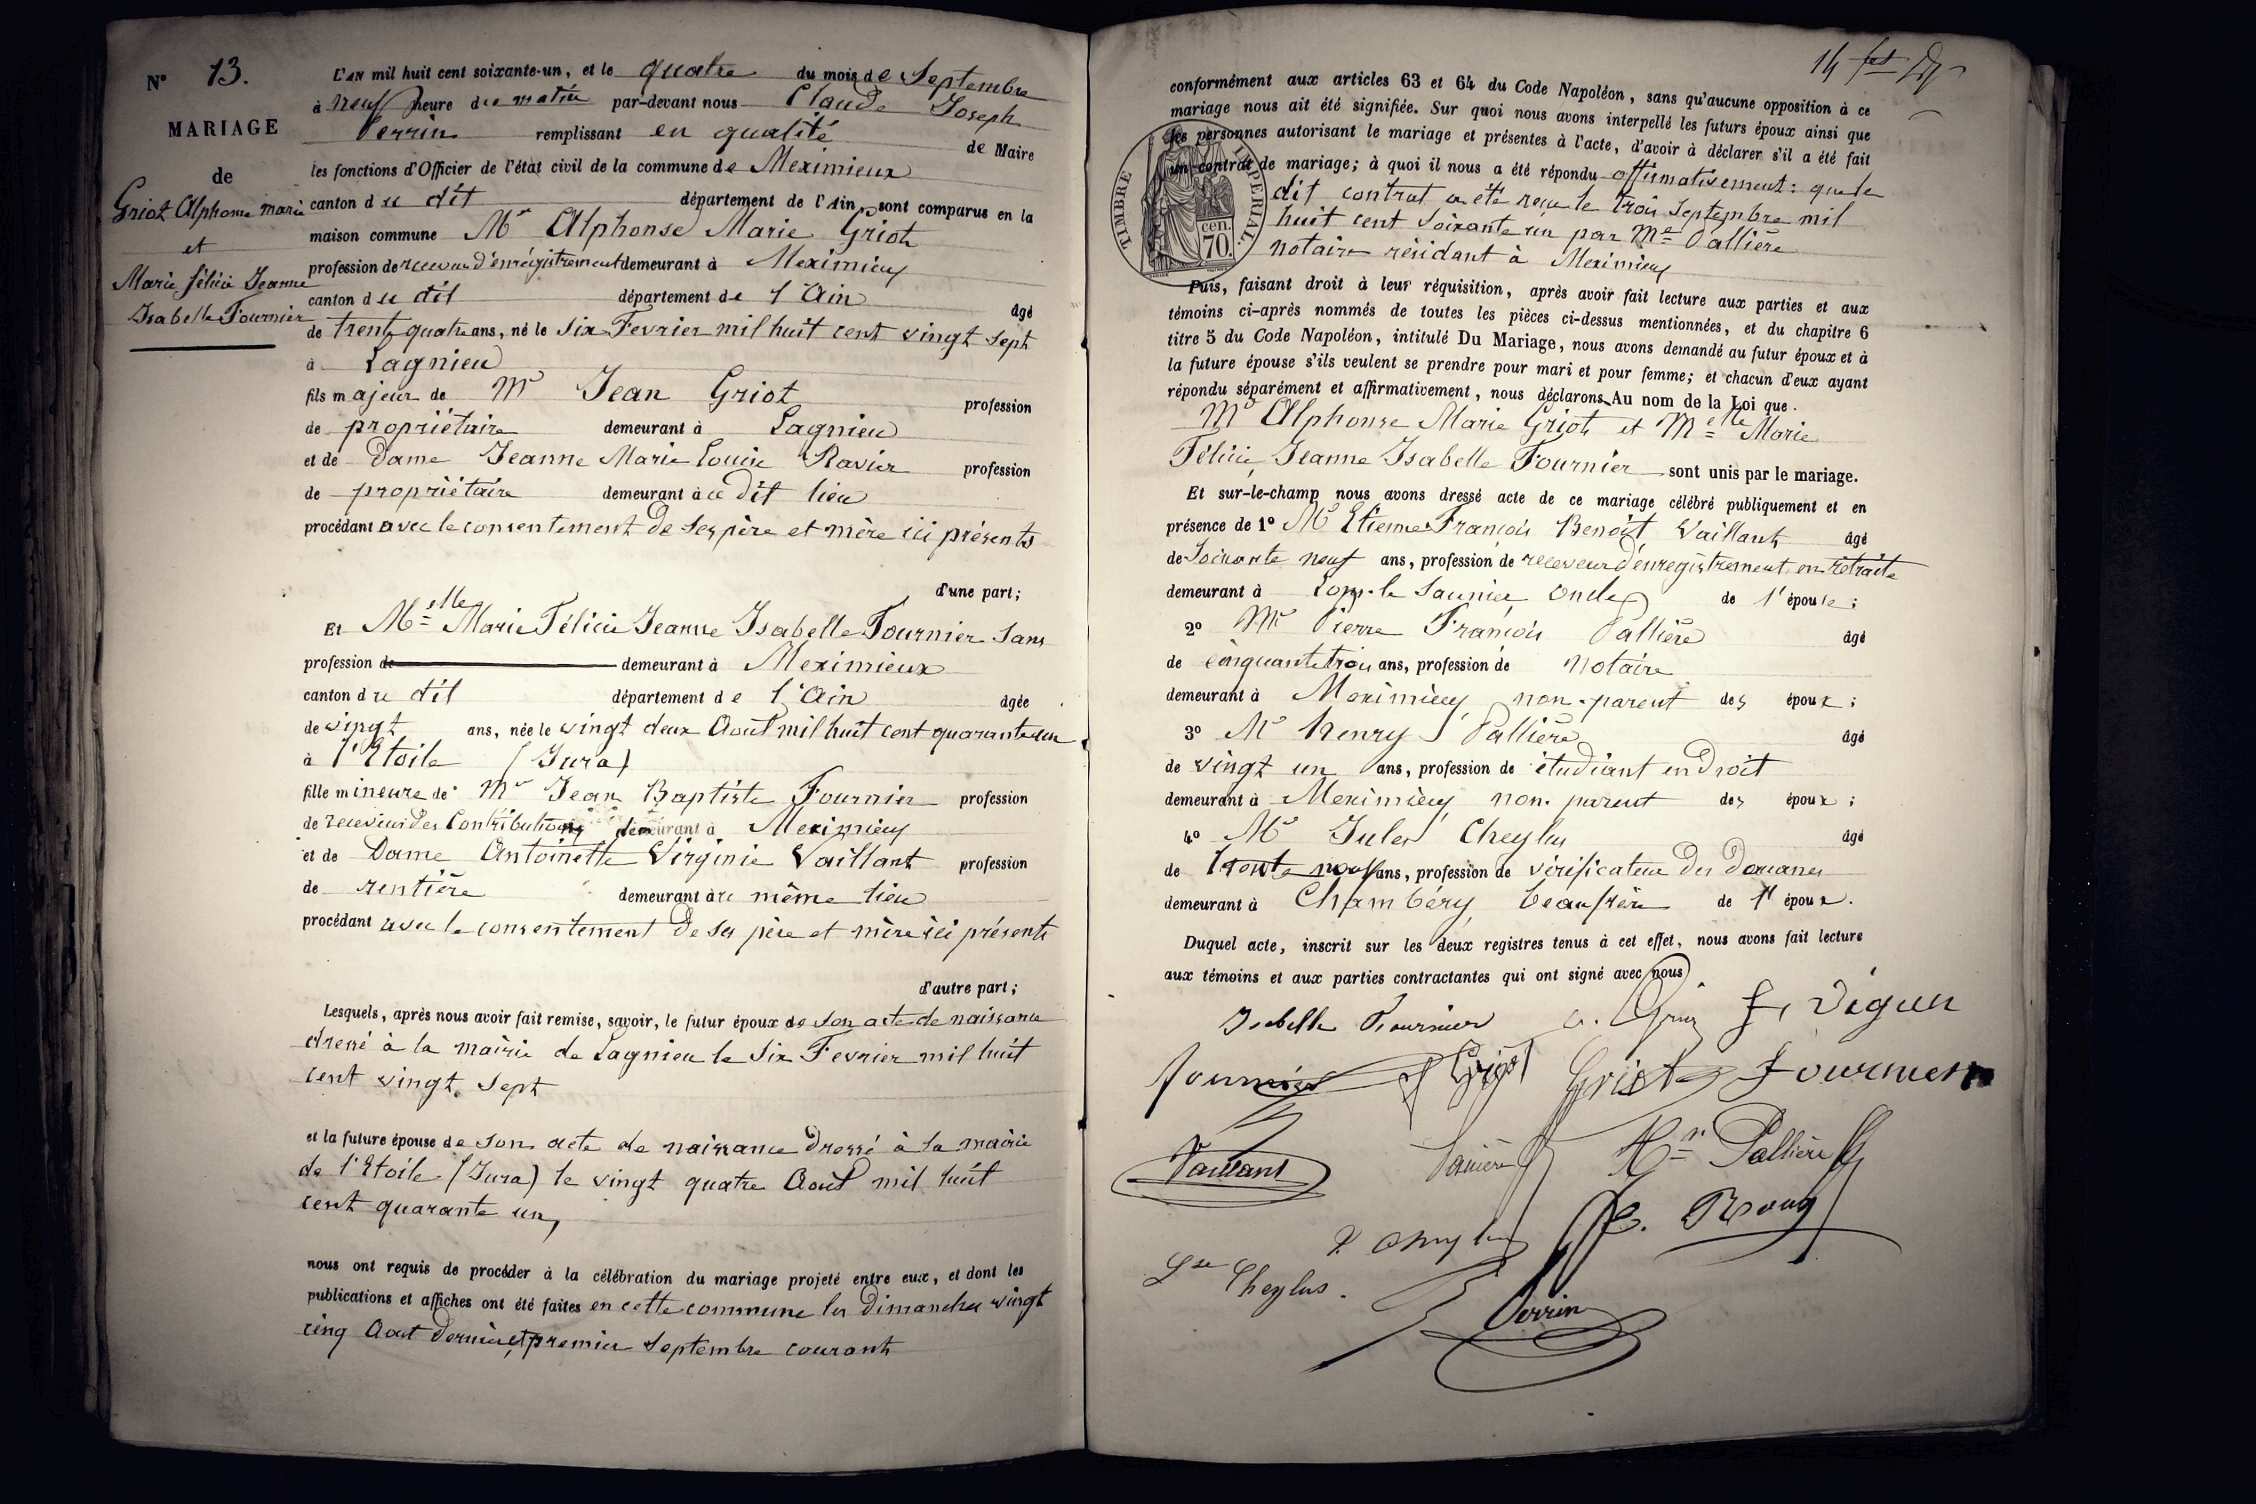 N° 13.
MARIAGE
de
Griot Alphonse Marie
et
Marie Félicie Jeanne
Isabelle Fournier
L'AN mil huit cent soixante-un, et le quatre du mois de Septembre
à neuf heure du matin par-devant nous Claude Joseph
Perrin remplissant en qualité de Maire
les fonctions d'Officier de l'état civil de la commune de Meximieux
canton du dit département de l'Ain, sont comparus en la
maison commune Mr Alphonse Marie Griot
profession de receveur d'enrégistrement demeurant à Meximieux
canton du dit département de l'Ain âgé
de trente quatre ans, né le Six Fevrier mil huit cent vingt sept
à Lagnieu
fils majeur de Mr Jean Griot profession
de propriétaire demeurant à Lagnieu
et de Dame Jeanne Marie Louise Ravier profession
de propriétaire demeurant à ce dit lieu
procédant avec le consentement de ses père et mère ici présents
d'une part;
Et Melle Marie Félicie Jeanne Isabelle Fournier sans
profession de demeurant à Meximieux
canton du dit département de l'Ain âgée
de vingt ans, née le vingt deux Août mil huit cent quarante un
à l'Etoile (Jura)
fille mineure de Mr Jean Baptiste Fournier profession
de receveur des Contributions demeurant à Meximieux
et de Dame Antoinette Virginie Vaillant profession
de rentière demeurant à ce même lieu
procédant avec le consentement de ses père et mère ici présents
d'autre part;
Lesquels, après nous avoir fait remise, savoir, le futur époux de son acte de naissance
dressé à la mairie de Lagnieu le Six Fevrier mil huit
cent vingt sept
et la future épouse de son acte de naissance dressé à la mairie
de l'Etoile (Jura) le vingt quatre Août mil huit
cent quarante un,
nous ont requis de procéder à la célébration du mariage projeté entre eux, et dont les
publications et affiches ont été faites en cette commune les dimanches vingt
cinq Aout dernier et premier Septembre courant
conformément aux articles 63 et 64 du Code Napoléon, sans qu'aucune opposition à ce
mariage nous ait été signifiée. Sur quoi nous avons interpellé les futurs époux ainsi que
les personnes autorisant le mariage et présentes à l'acte, d'avoir à déclarer s'il a été fait
un contrat de mariage; à quoi il nous a été répondu affirmativement: que le
dit contrat a été reçu le trois Septembre mil
huit cent soixante un par Me Pallière
notaire résidant à Meximieux
TIMBRE IMPERIAL.
cen.
70.
Puis, faisant droit à leur réquisition, après avoir fait lecture aux parties et aux
témoins ci-après nommés de toutes les pièces ci-dessus mentionnées, et du chapitre 6
titre 5 du Code Napoléon, intitulé Du Mariage, nous avons demandé au futur époux et à
la future épouse s'ils veulent se prendre pour mari et pour femme; et chacun d'eux ayant
répondu séparément et affirmativement, nous déclarons Au nom de la Loi que.
Mr Alphonse Marie Griot et Melle Marie
Félicie Jeanne Isabelle Fournier sont unis par le mariage.
Et sur-le-champ nous avons dressé acte de ce mariage célébré publiquement et en
présence de 1° Mr Etienne François Benoît Vaillant âgé
de Soixante neuf ans, profession de receveur d'enregistrement en retraite
demeurant à Lons-le Saunier oncle de l'épouse;
2° Mr Pierre François Pallière âgé
de cinquante trois ans, profession de notaire
demeurant à Meximieux non-parent des époux;
3° Mr Henry Pallière âgé
de vingt un ans, profession de étudiant en Droit
demeurant à Meximieux non-parent des époux;
4° Mr Jules Cheylus âgé
de trente neuf ans, profession de vérificateur des Douanes
demeurant à Chambéry beaufrère de l'époux.
Duquel acte, inscrit sur les deux registres tenus à cet effet, nous avons fait lecture
aux témoins et aux parties contractantes qui ont signé avec nous
Isabelle Fournier
Fournier Griot Griot Fournier
Vaillant Pallière Hri Pallière
Lse Cheylus.
Perrin